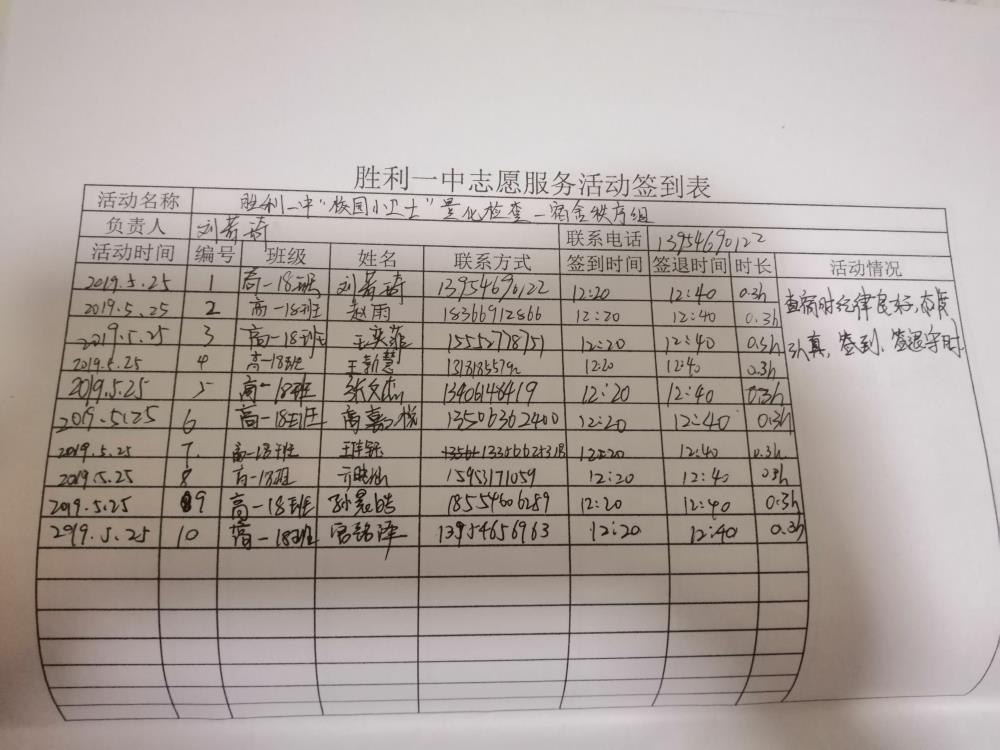 胜利一中志愿服务活动签到表
活动名称 胜利一中"校园小卫士"量化检查—宿舍秩序组
负责人 刘芳琦 联系电话 13954690122
活动时间 编号 班级 姓名 联系方式 签到时间 签退时间 时长 活动情况
2019.5.25 1 高一18班 刘芳琦 13954690122 12:20 12:40 0.3h 查宿时纪律良好,态度
2019.5.25 2 高一18班 赵雨 18366912866 12:20 12:40 0.3h
2019.5.25 3 高一18班 王奕菲 15552778751 12:20 12:40 0.3h 认真,签到、签退守时.
2019.5.25 4 高一18班 王新慧 12:20 12:40 0.3h
2019.5.25 5 高一18班 张文杰 13406146419 12:20 12:40 0.3h
2019.5.25 6 高一18班 高嘉悦 13506362400 12:20 12:40 0.3h
2019.5.25 7. 高一18班 12:20 12:40 0.3h.
2019.5.25 8 高一18班 15953171059 12:20 12:40 0.3h
2019.5.25 9 高一18班 孙晨皓 18554606289 12:20 12:40 0.3h
2019.5.25 10 高一18班 宫铭泽 13954656963 12:20 12:40 0.3h